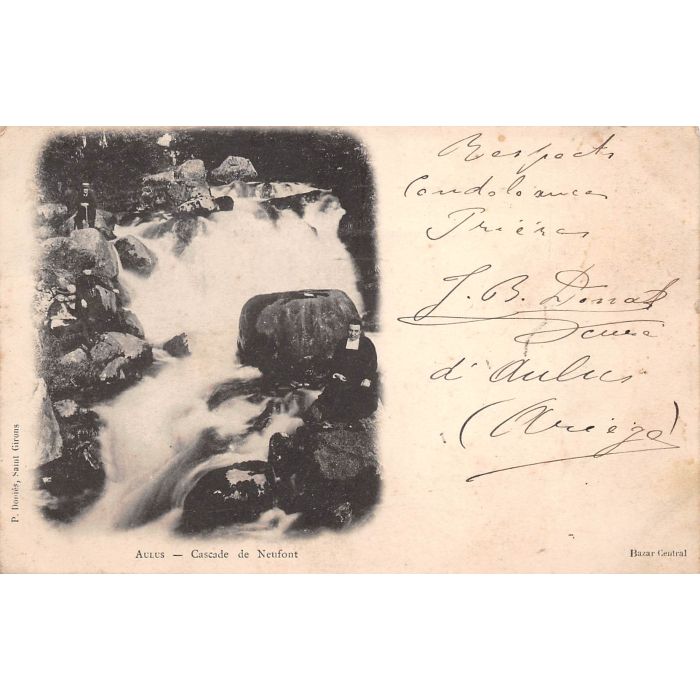 Respects
Condoléances
Prières
J. B. Donat
d'Aulus
(Ariège)
P. Domiès, Saint Girons
AULUS — Cascade de Neufont
Bazar Central